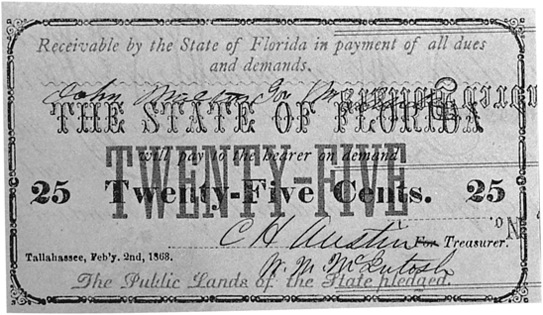 Receivable by the State of Florida in payment of all dues
and demands.
John Milton
THE STATE OF FLORIDA
will pay to the bearer on demand
TWENTY-FIVE
25 Twenty-Five Cents. 25
No.
C H Austin For Treasurer.
Tallahassee, Feb'y. 2nd, 1863.
W. M. McIntosh
The Public Lands of the State pledged.